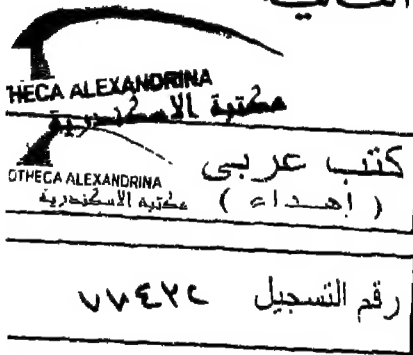 THECA ALEXANDRINA
مكتبة الاسكندرية
OTHECA ALEXANDRINA
مكتبة الاسكندرية
كتب عربى
( اهداء )
رقم التسجيل ٧٧٤٢٢